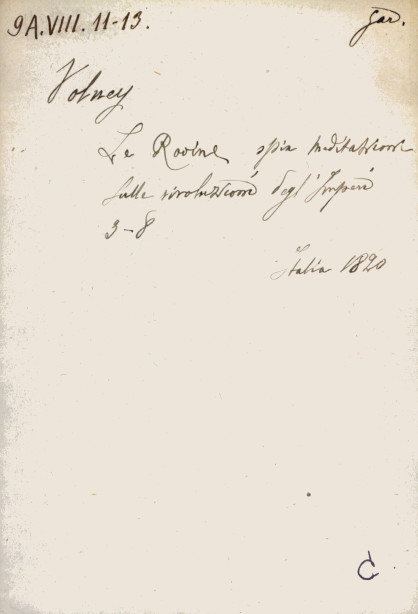 9A.VIII. 11-13.
gar.
Volney
Le Rovine, ossia meditazioni
sulle rivoluzioni degl'Imperi
3-8
Italia 1820
C